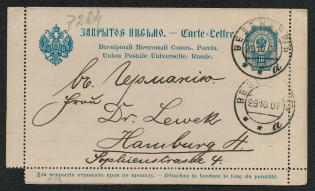 72Rd
ЗАКРЫТОЕ ПИСЬМО. — Carte-Lettre
Всемірный Почтовый Союзъ. Россія.
Union Postale Universelle. Russie.
29 10 07
a
въ Германію.
Herrn
Dr. Lewek
29 10 07
a
Hamburg 4
Sophienstrasse 4.
Для вскрытія оторвать края по проколу. — Détachez la bordure le long du pointillé.